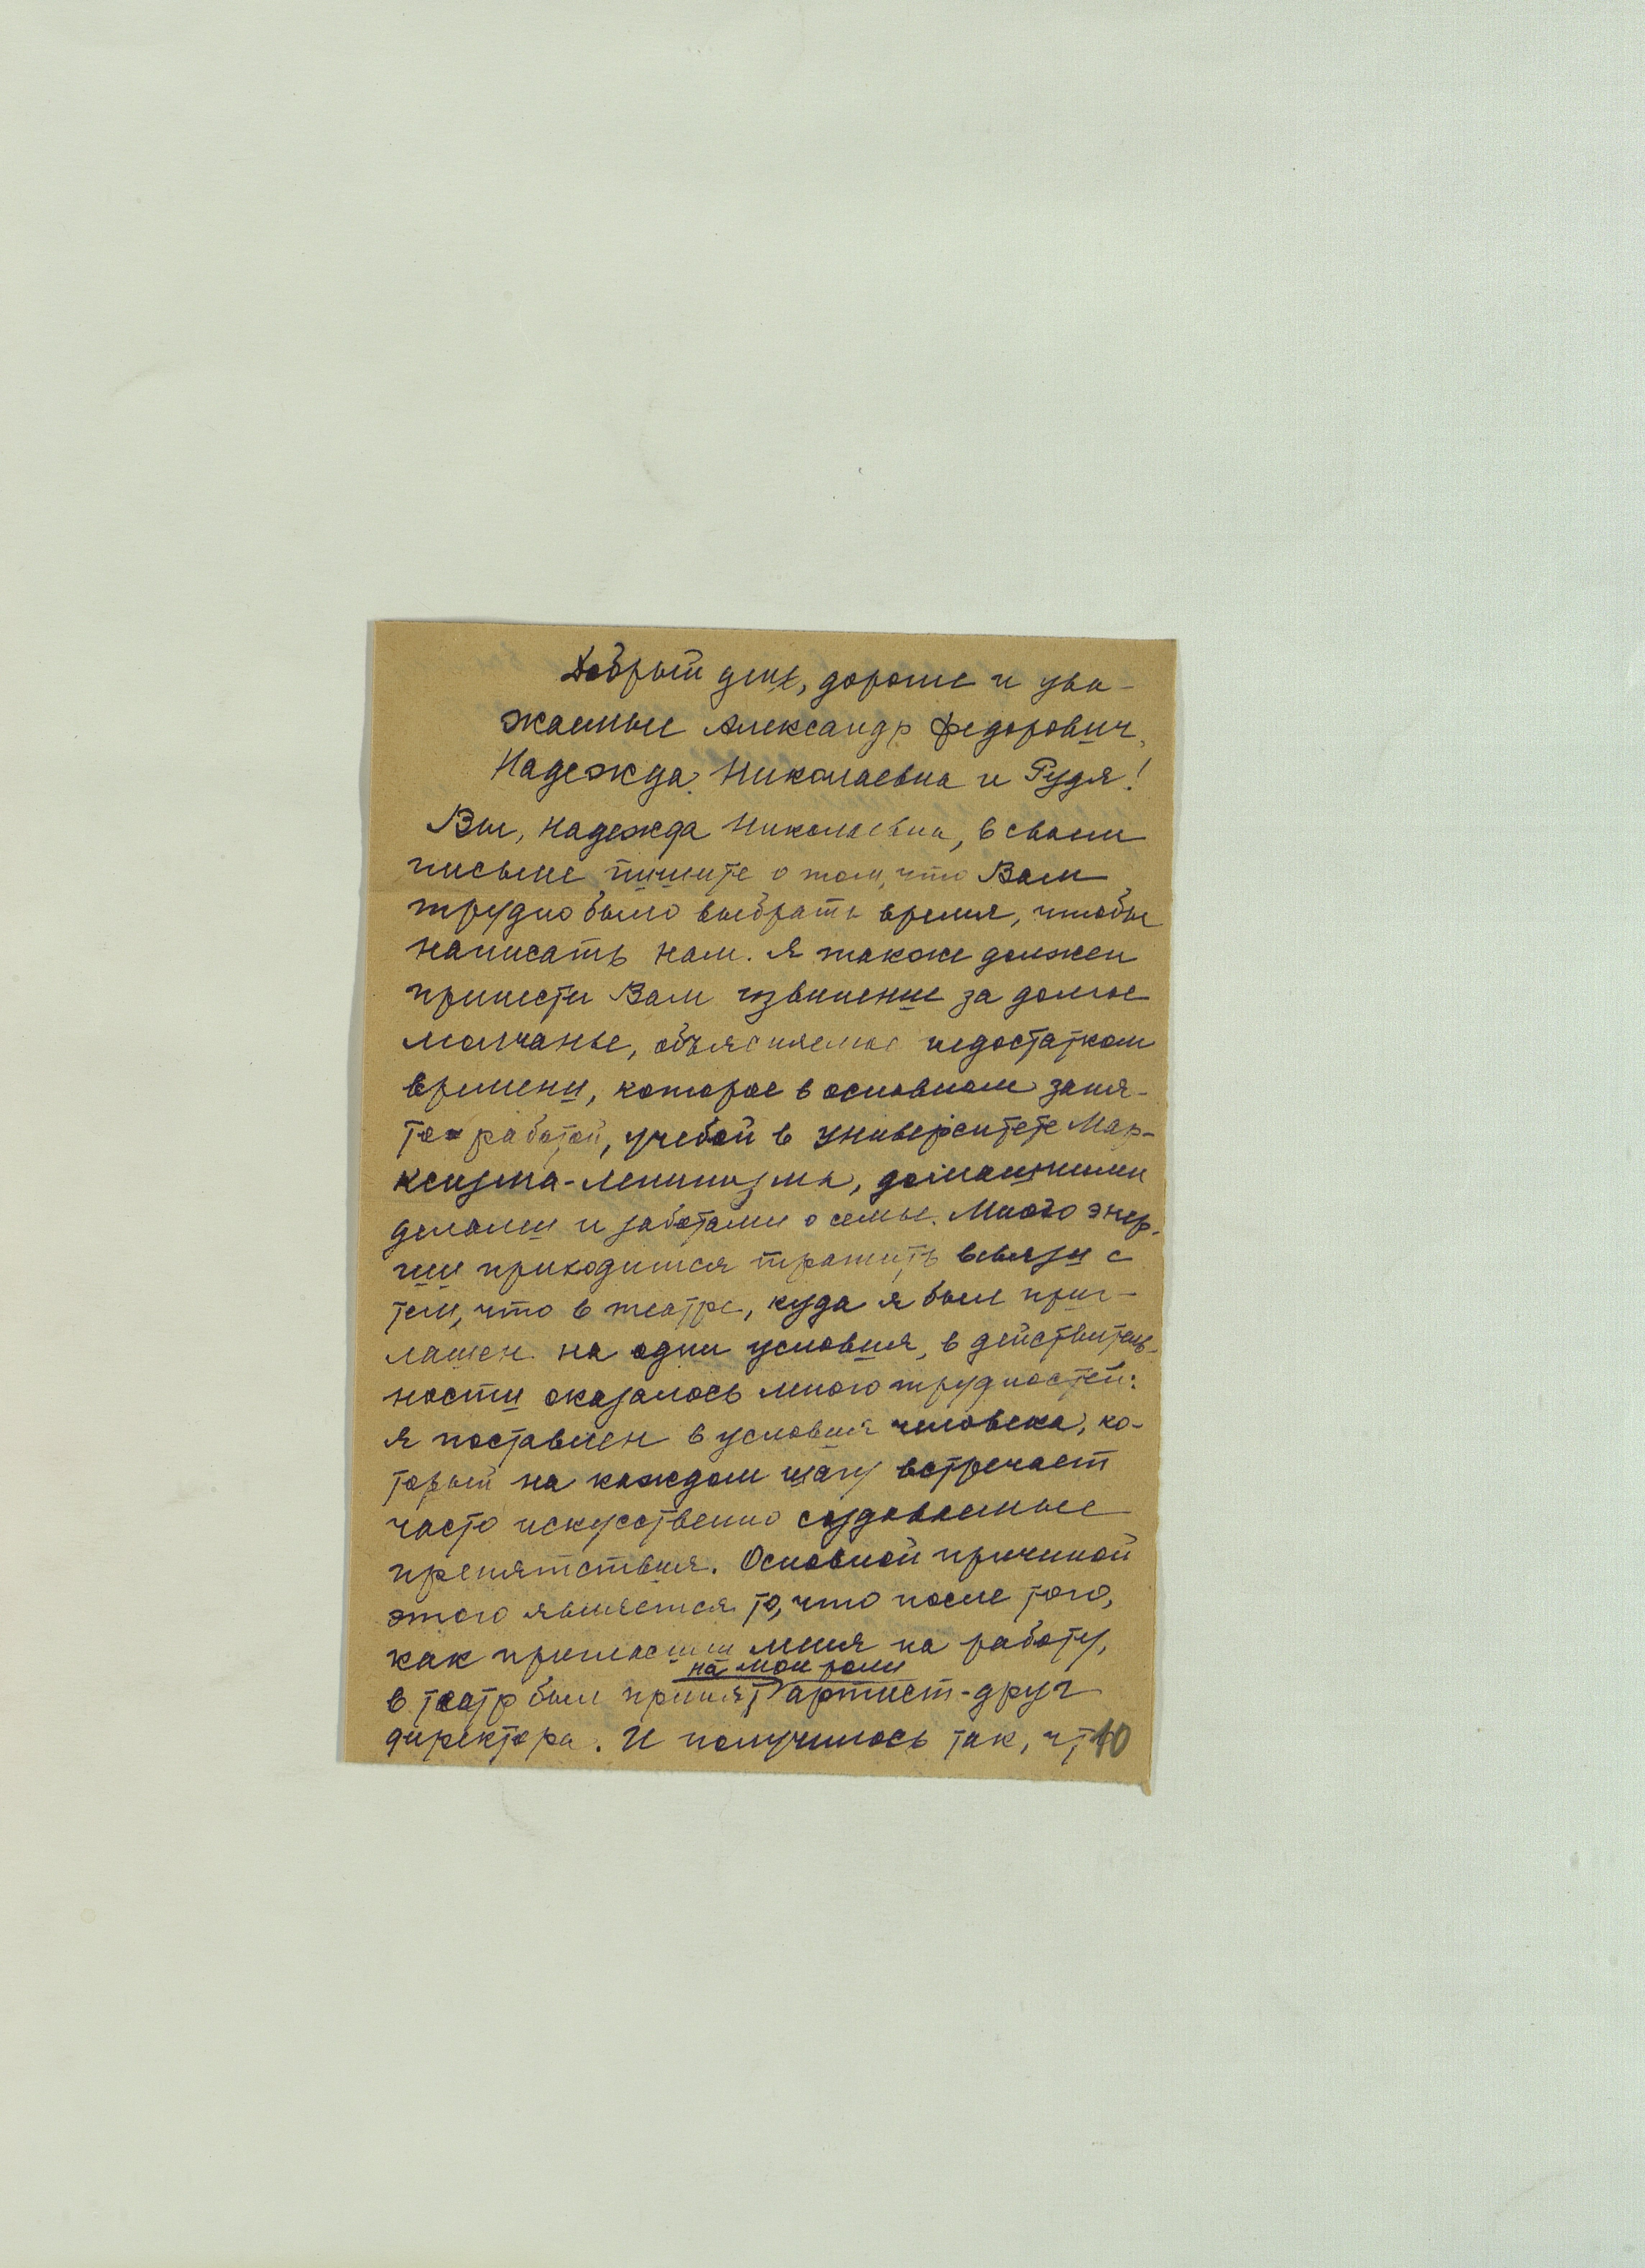 Добрый день, дорогие и ува-
жаемые Александр Федорович,
Надежда Николаевна и Рудя!
Вы, Надежда Николаевна, в своем
письме пишите о том, что Вам
трудно было выбрать время, чтобы
написать нам. Я также должен
принести Вам извинение за долгое
молчанье, объясняемое недостатком
времени, которое в основном заня-
то работой, учебой в Университете Мар-
ксизма-Ленинизма, домашними
делами и заботами о семье. Много энер-
гии приходится тратить всвязи с
тем, что в театре, куда я был приг-
лашен на одни условия, в действитель-
ности оказалось много трудностей:
я поставлен в условия человека, ко-
торый на каждом шагу встречает
часто искусственно создаваемые
препятствия. Основной причиной
этого является то, что после того,
как пригласили меня на работу,
на мои роли
в театр был принят артист-друг
директора. И получилось так, что
10